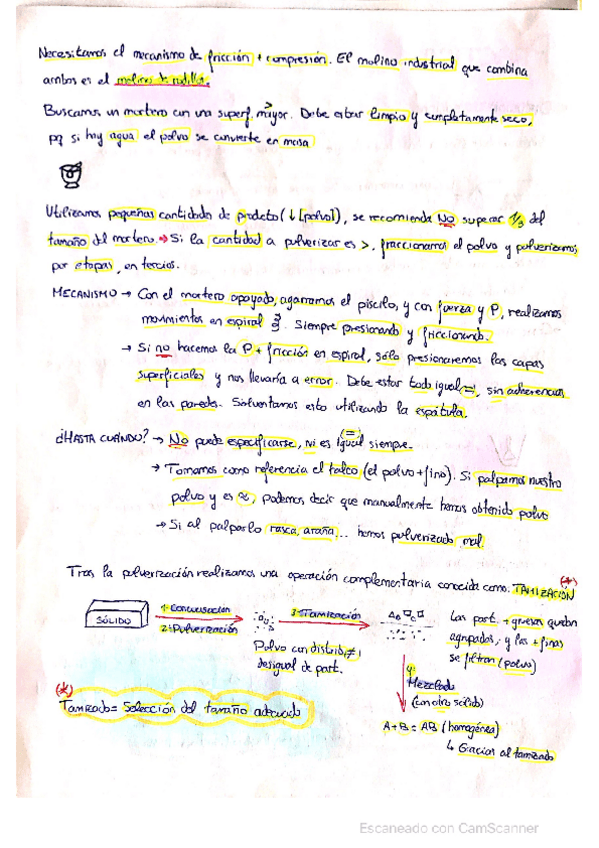 Necesitamos el mecanismo de fricción + compresión. El molino industrial que combina
ambos es el molino de rodillos.
Buscamos un mortero con una superf. mayor. Debe estar limpio y completamente seco,
pq si hay agua el polvo se convierte en masa
Utilizamos pequeñas cantidades de producto (↓[polvo]), se recomienda No superar 1/3 del
tamaño del mortero. → Si la cantidad a pulverizar es >, fraccionamos el polvo y pulverizamos
por etapas, en tercios.
MECANISMO → Con el mortero apoyado, agarramos el pistilo, y con fuerza y P, realizamos
movimientos en espiral. Siempre presionando y friccionando.
→ Si no hacemos la P + fricción en espiral, sólo presionaremos las capas
superficiales y nos llevaría a error. Debe estar todo igual (=), sin adherencias
en las paredes. Solventamos esto utilizando la espátula.
¿HASTA CUÁNDO? → No puede especificarse, ni es igual (=) siempre.
→ Tomamos como referencia el talco (el polvo + fino). Si palpamos nuestro
polvo y es ≈, podemos decir que manualmente hemos obtenido polvo
→ Si al palparlo rasca, araña... hemos pulverizado mal.
Tras la pulverización realizamos una operación complementaria conocida como: TAMIZACIÓN (*)
SÓLIDO
1: Concusación
2: Pulverización
Polvo con distrib ≠ /
desigual de part.
3: Tamización
Las part. + gruesas quedan
agrupadas, y las + finas
se filtran (polvo)
4:
Mezclado
(con otro sólido)
A + B = AB (homogénea)
↳ Gracias al tamizado
(*)
Tamizado = Selección del tamaño adecuado
Escaneado con CamScanner